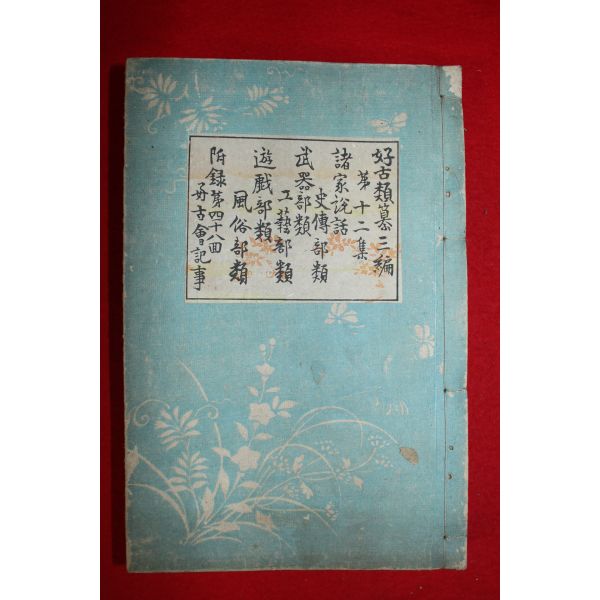 好古類纂三編
第十二集
諸家説話
史傳部類
武器部類
工藝部類
遊戯部類
風俗部類
附録第四十八回
好古會記事